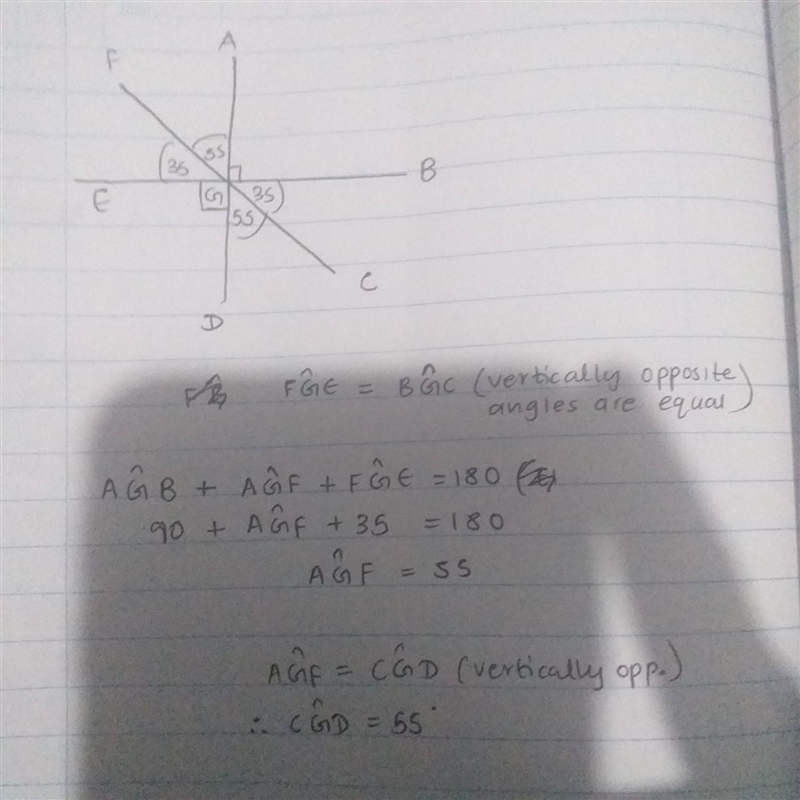 A
F
55
35
B
E
G
35
55
C
D
FĜE = BĜC (vertically opposite
angles are equal)
AĜB + AĜF + FĜE = 180
90 + AĜF + 35 = 180
AĜF = 55
AĜF = CĜD (vertically opp.)
∴ CĜD = 55°